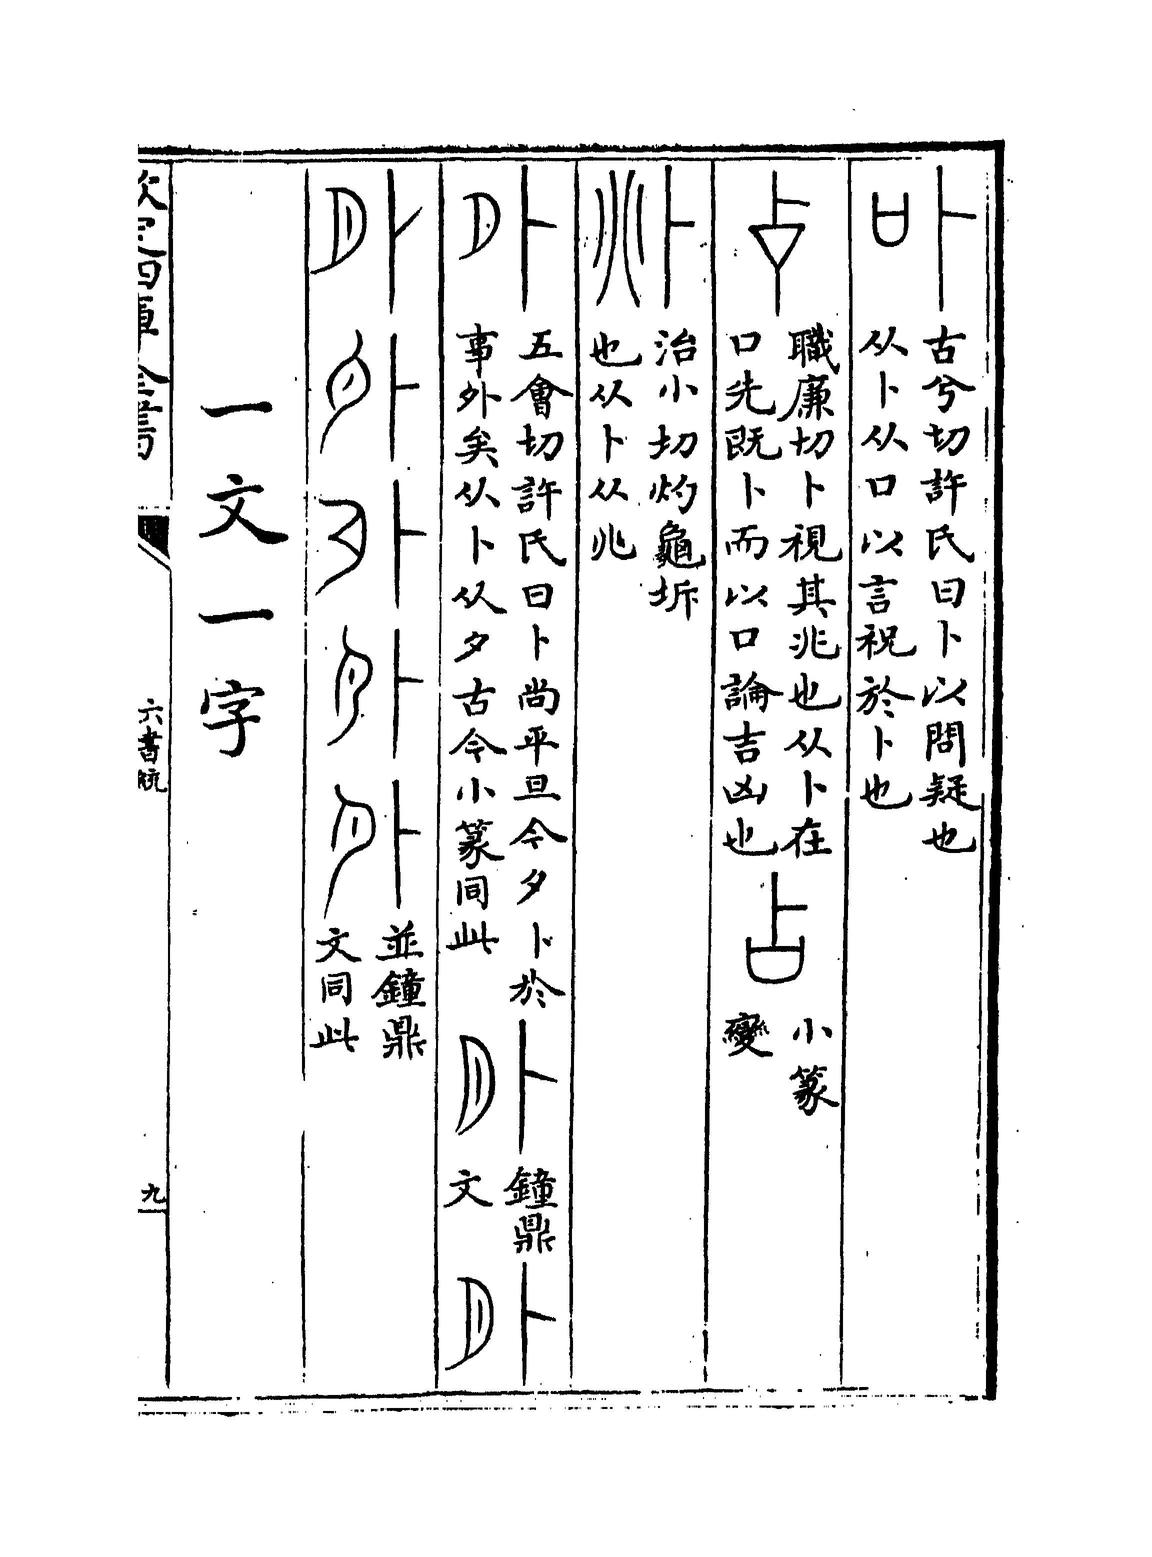 古兮切許氏曰卜以問疑也
从卜从口以言祝於卜也
職廉切卜視其兆也从卜在
口先既卜而以口論吉凶也
小篆
變
治小切灼龜坼
也从卜从兆
五會切許氏曰卜尚平旦今夕卜於
事外矣从卜从夕古今小篆同此
鐘鼎
文
並鐘鼎
文同此
一文一字
欽定四庫全書
六書統
九